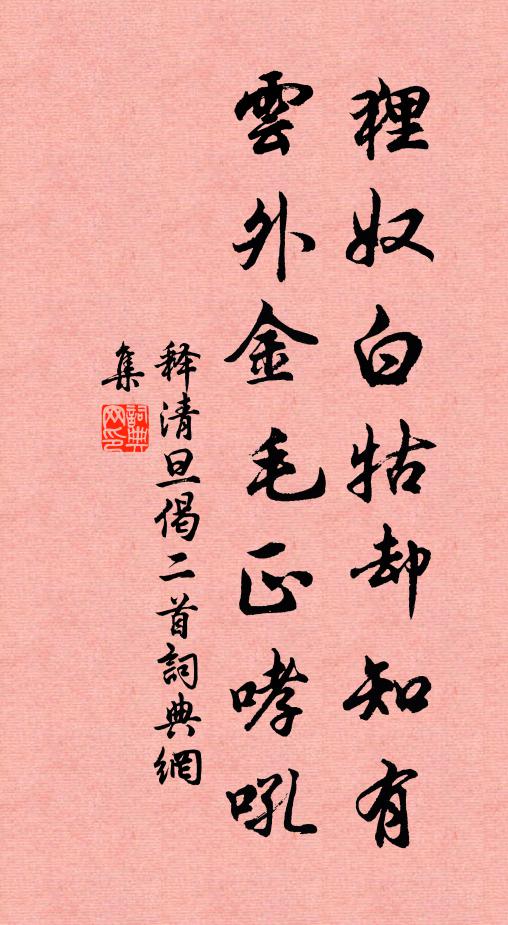 狸奴白牯却知有
雲外金毛正哮吼
释清旦偈二首詞典網
集
詞典
网印